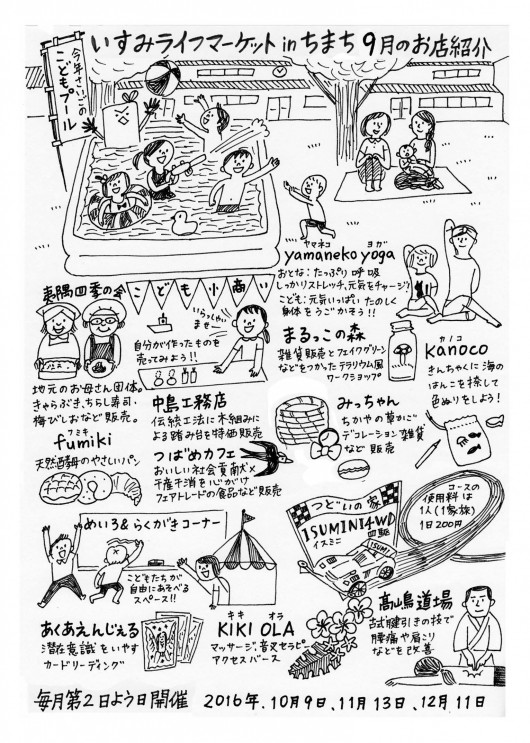 いすみライフマーケット in ちまち 9月のお店紹介
今年さいごの
こどもプール
ヤマネコ ヨガ
yamaneko yoga
おとな：たっぷり呼吸
しっかりストレッチ、元気をチャージ♪
こども：元気いっぱい たのしく
身体をうごかそう!!
夷隅四季の会
地元のお母さん団体。
きゃらぶき、ちらし寿司・
梅びしおなど販売。
こども小商い
いらっしゃい
ませー
自分が作ったものを
売ってみよう!!
まるっこの森
雑貨販売とフェイクグリーン
などをつかったテラリウム風
ワークショップ
カノコ
kanoco
きんちゃくに海の
はんこを捺して
色ぬりをしよう!
フミキ
fumiki
天然酵母のやさしいパン
中島工務店
伝統工法に木組みに
よる踏み台を特価販売
つばめカフェ
おいしい社会貢献×
千産千消を心がけ
フェアトレードの食品など販売
みっちゃん
ちかやの草かご
デコレーション雑貨
など販売
めいろ&らくがきコーナー
こどもたちが
自由にあそべる
スペース!!
つどいの家
ISUMINI4WD
イスミニ 四駆
ISUMI
コースの
使用料は
1人(1家族)
1日200円
あくあえんじぇる
潜在意識をいやす
カードリーディング
キキ オラ
KIKI OLA
マッサージ、音叉セラピー
アクセスバース
髙嶋道場
試腱引きの技で
腰痛や肩こり
などを改善
毎月第2日よう日開催 2016年、10月9日、11月13日、12月11日